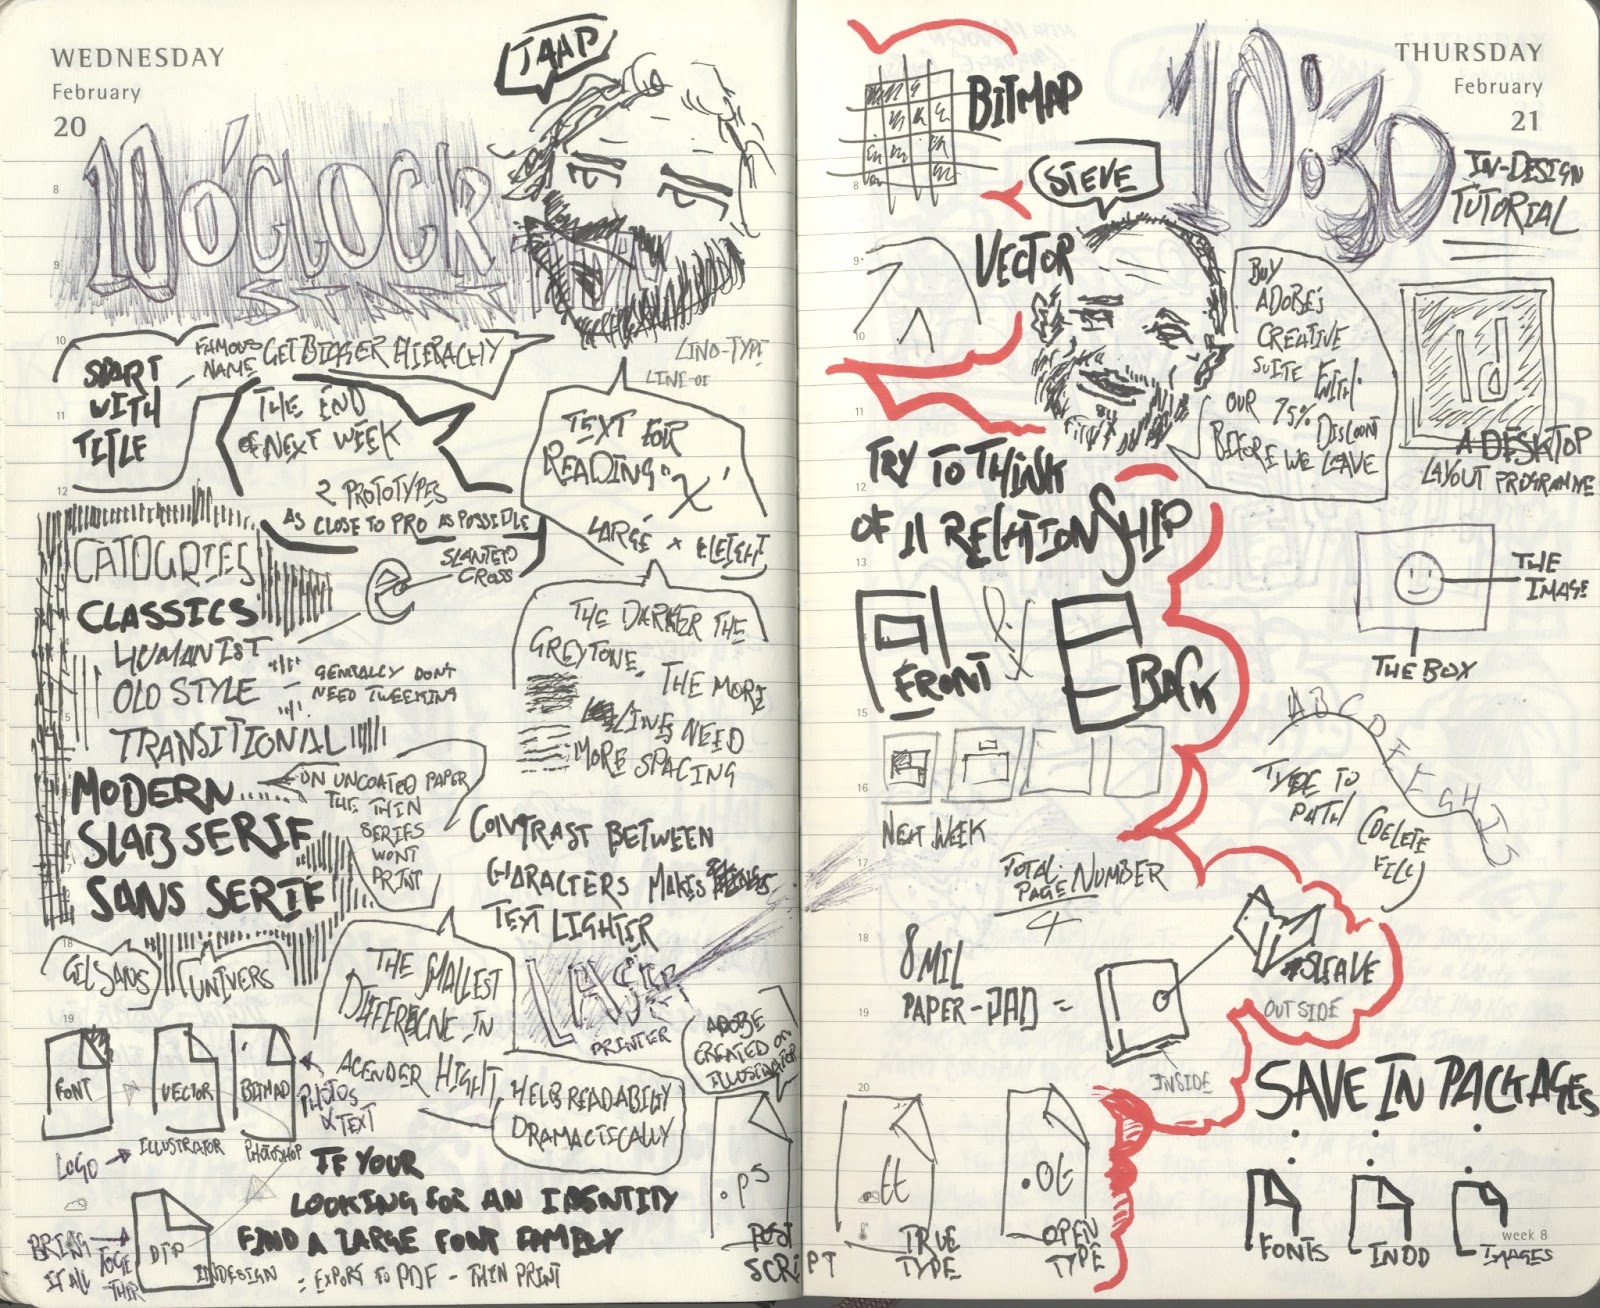 WEDNESDAY
February
20
JAAP
10 O'CLOCK
START
LINO-TYPE
START
WITH
TITLE
FAMOUS
NAME
GET BIGGER HIERACHY
THE END
OF NEXT WEEK
2 PROTOTYPES
AS CLOSE TO PRO AS POSSIBLE
TEXT FOR
READING "X"
LARGE X HEIGHT
SLANTED
CROSS
e
CATOGRIES
CLASSICS
HUMANIST
OLD STYLE
GENERALLY DONT
NEED TWEEKING
TRANSITIONAL
MODERN
ON UNCOATED PAPER
THE THIN
SERIES
WONT
PRINT
SLAB SERIF
SANS SERIF
GILSANS
UNIVERS
THE DARKER THE
GREYTONE. THE MORE
LINES NEED
MORE SPACING
CONTRAST BETWEEN
CHARACTERS MAKES
TEXT LIGHTER
THE SMALLEST
DIFFERECNE IN
ACENDER HIGHT
HELBS READABILITY
DRAMACTICALLY
LASER
PRINTER
ADOBE
CREATED ON
ILLUSTRATOR
FONT
VECTOR
BITMAP
PHOTOS
& TEXT
LOGO
ILLUSTRATOR
PHOTOSHOP
IF YOUR
LOOKING FOR AN IDENTITY
FIND A LARGE FONT FAMILY
BRING
IT ALL
TOGE
THER
DTP
INDESIGN
: EXPORT TO PDF - THIN PRINT
.ps
POST
SCRIPT
THURSDAY
February
21
BITMAP
STEVE
10:30
IN-DESIGN
TUTORIAL
VECTOR
BUY
ADOBE'S
CREATIVE
SUITE WITH
OUR 75% DISCOUNT
BEFORE WE LEAVE
Id
A DESKTOP
LAYOUT PROGRAMME
TRY TO THINK
OF A RELATIONSHIP
FRONT & BACK
THE
IMAGE
THE BOX
A B C D E F G H I J S
TYPE TO
PATH
(DELETE
FILL)
NEXT WEEK
TOTAL
PAGE NUMBER
4
8 MIL
PAPER-PAD =
SLEAVE
OUTSIDE
INSIDE
SAVE IN PACKAGES
.tt
TRUE
TYPE
.ot
OPEN
TYPE
FONTS
INDD
IMAGES
week 8